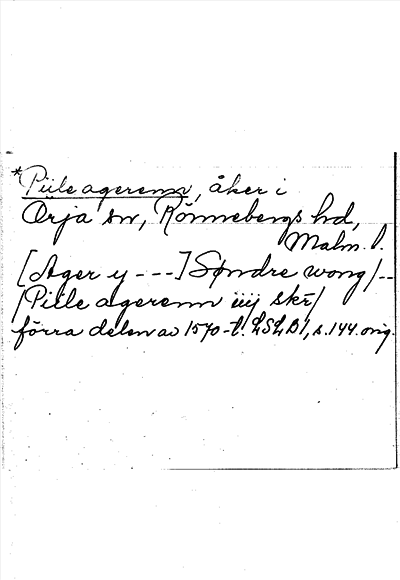 *Piile agerenn, åker i
Ørja sn, Rönnebergs hd,
Malm. l.
[Ager y - - -] Søndre wong/--
/Piile agerenn iiij skr̄/
förra delen av 1570-t. LSLB1, s. 144. orig.